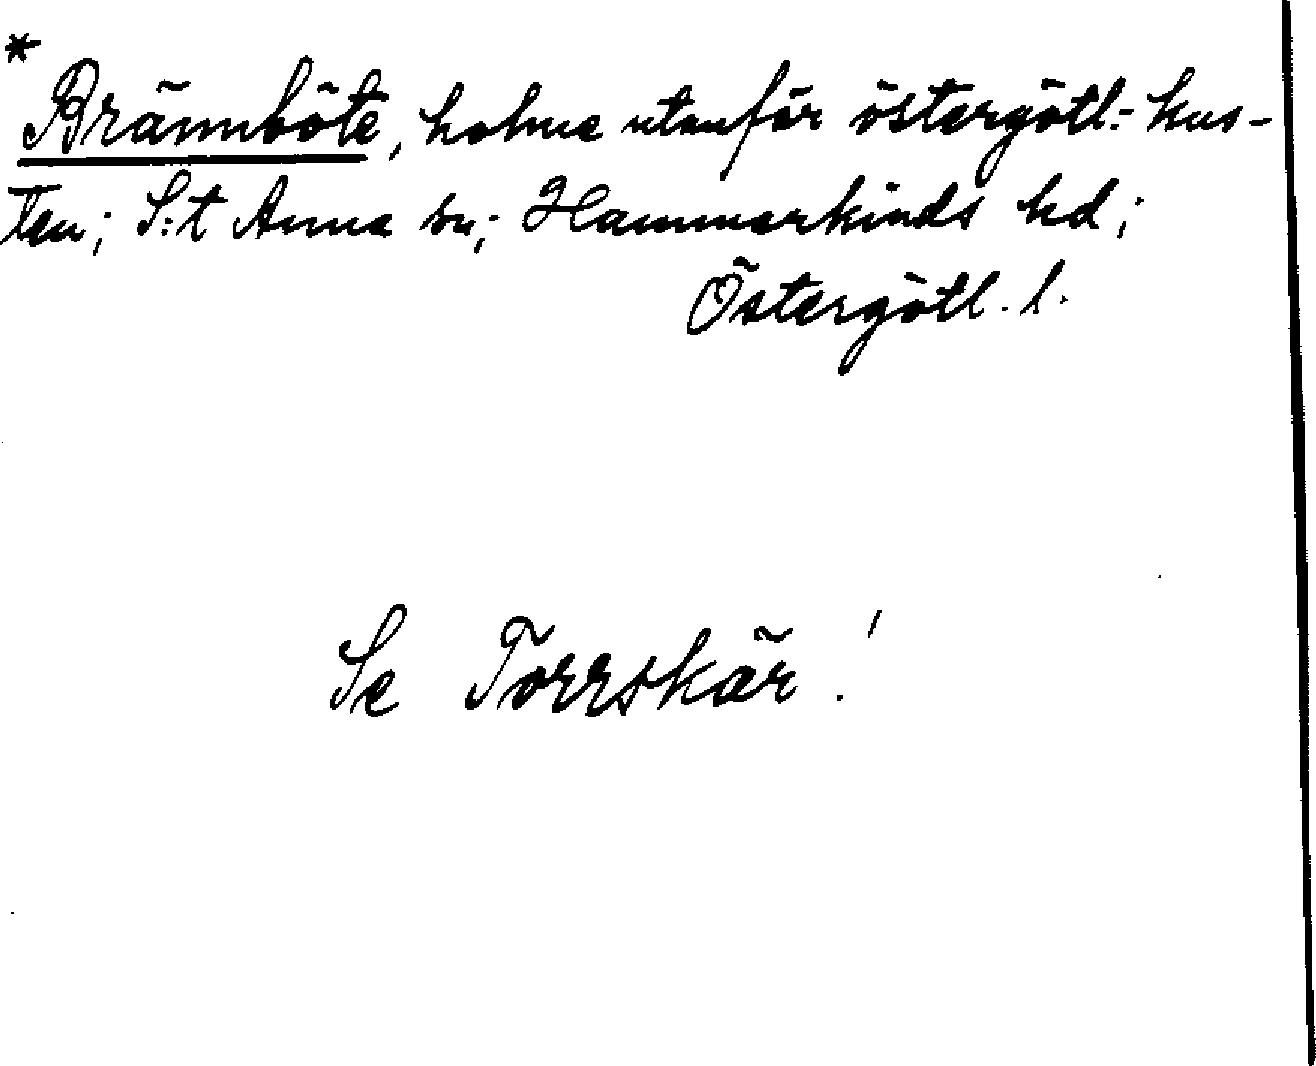 *
Brännböte, holme utanför östergötl.-kus-
ten; S:t Anna sn; Hammarkinds hd;
Östergötl. l.
Se Torrskär!